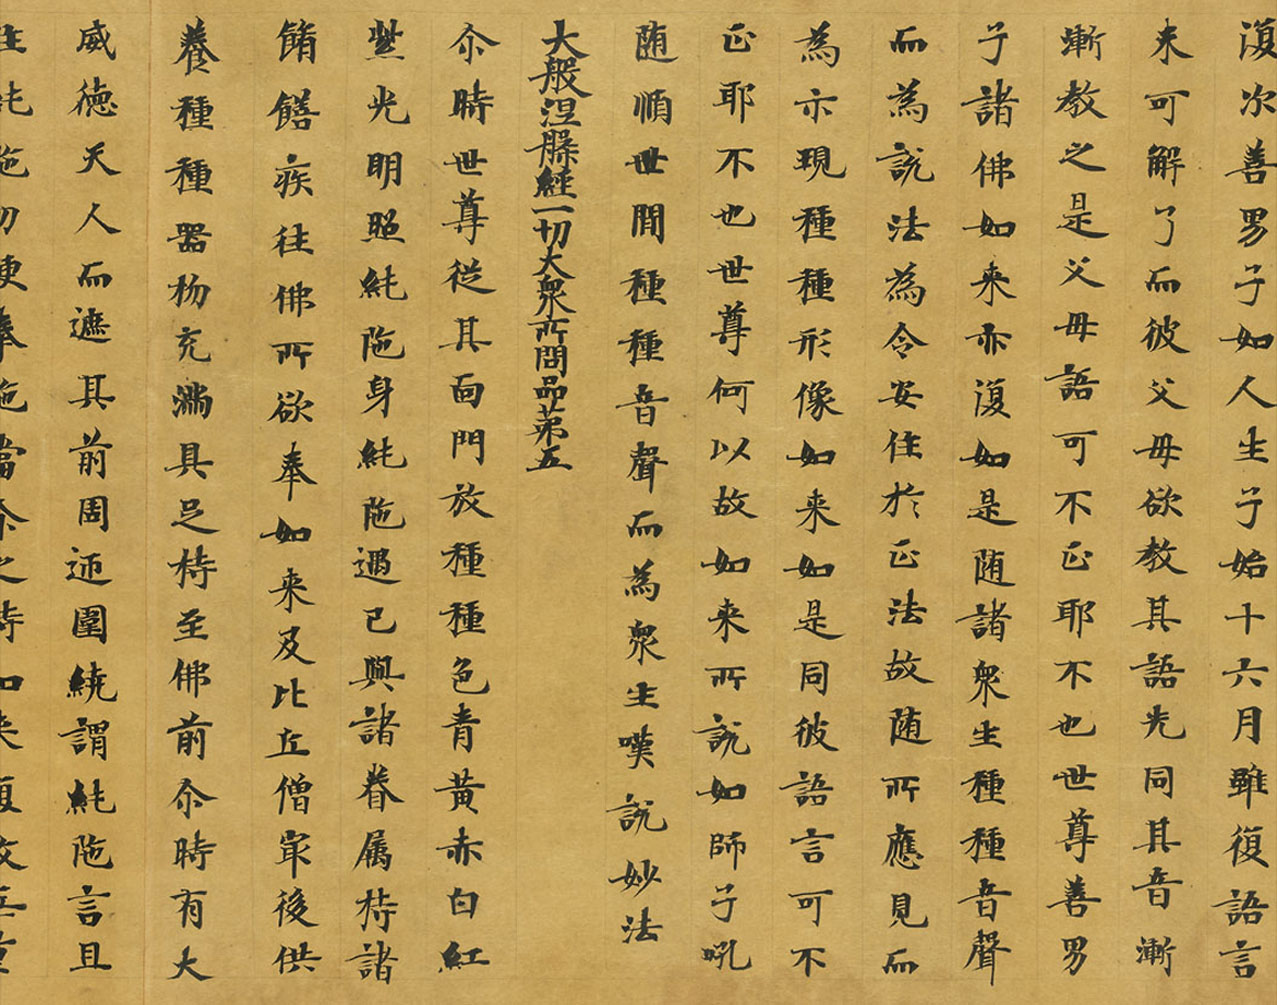 復次善男子如人生子始十六月雖復語言
未可解了而彼父母欲教其語先同其音漸
漸教之是父母語可不正耶不也世尊善男
子諸佛如来亦復如是随諸衆生種種音聲
而為説法為令安住於正法故随所應見而
為示現種種形像如来如是同彼語言可不
正耶不也世尊何以故如来所説如師子吼
随順世間種種音聲而為衆生嘆説妙法
大般涅槃經一切大衆所問品第五
尒時世尊從其面門放種種色青黄赤白紅
㸃光明照純陁身純陁遇已與諸眷属持諸
餚饍疾往佛所欲奉如来及比丘僧冣後供
養種種器物充満具足持至佛前尒時有大
威德天人而遮其前周迊圍繞謂純陁言且
住純陁勿便奉施當尒之時如来復放无量